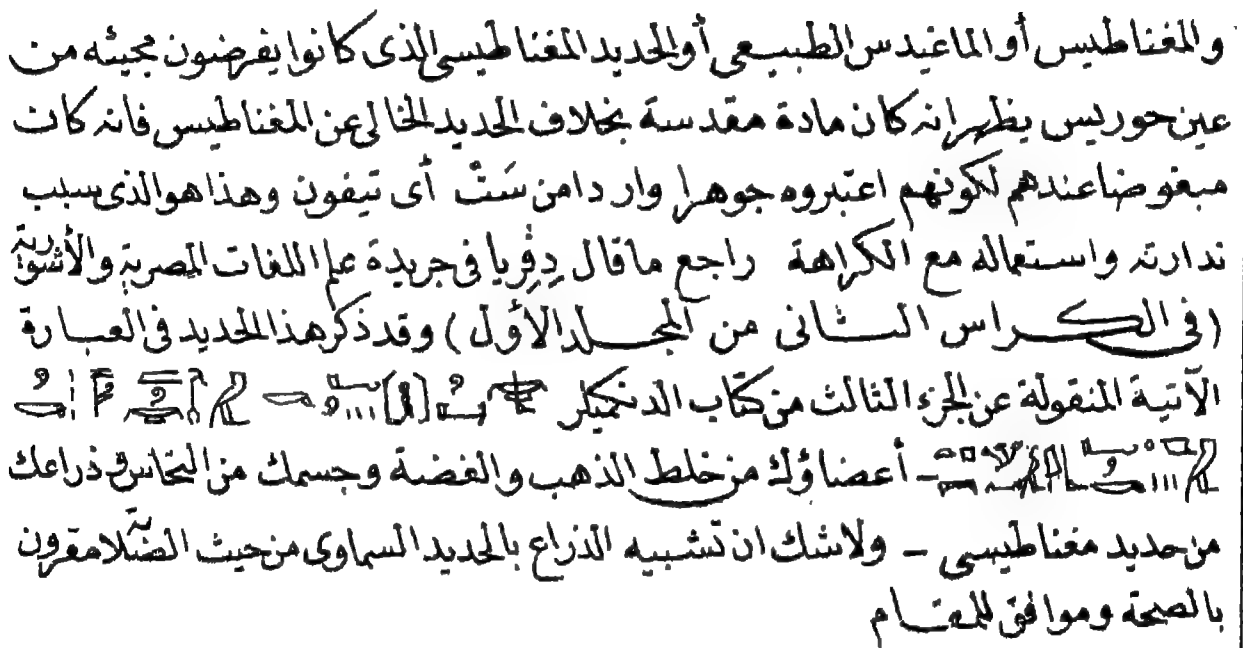 والمغناطيس أو الماغيدس الطبيعى أو الحديد المغناطيسى الذى كانوا يفرضون مجيئه من
عين حوريس يظهر انه كان مادة مقدسة بخلاف الحديد الخالى عن المغناطيس فانه كان
مبغوضا عندهم لكونهم اعتبروه جوهرا واردا من سَتْ أى تيفون وهذا هو الذى سبب
ندارته واستعماله مع الكراهة راجع ماقال دِڤِريا فى جريدة علم اللغات المصرية والأشورية
(فى الكراس الثانى من المجلد الأول) وقد ذكر هذا الحديد فى العبارة
الآتية المنقولة عن الجزء الثالث من كتاب الدنكميلر
– أعضاؤك من خلط الذهب والفضة وجسمك من النحاس وذراعك
من حديد مغناطيسى – ولاشك ان تشبيه الذراع بالحديد السماوى من حيث الصلابة مقرون
بالصحة وموافق للمقام